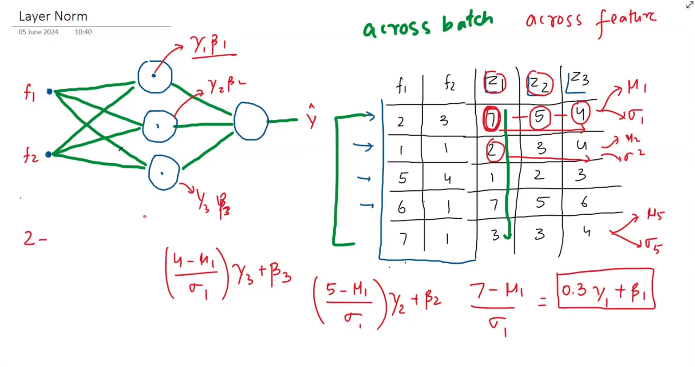 Layer Norm
05 June 2024 10:40
across batch across feature
γ₁ β₁
γ₂ β₂
γ₃ β₃
f₁
f₂
ŷ
f₁ f₂ z₁ z₂ z₃
2 3 7 5 4 μ₁ σ₁
1 1 2 3 4 μ₂ σ2
5 4 1 2 3
6 1 7 5 6
7 1 3 3 4 μ₅ σ₅
2 –
(4 – μ₁ / σ₁) γ₃ + β₃
(5 – μ₁ / σ₁) γ₂ + β₂
7 – μ₁ / σ₁ = 0.3 γ₁ + β₁